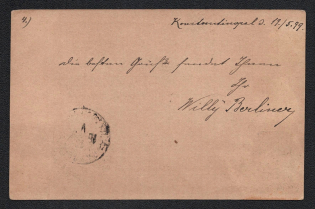 4.)
Konstantinopel d. 12/5.99.
die besten Grüße sendet Ihnen
Ihr
Willy Berliner